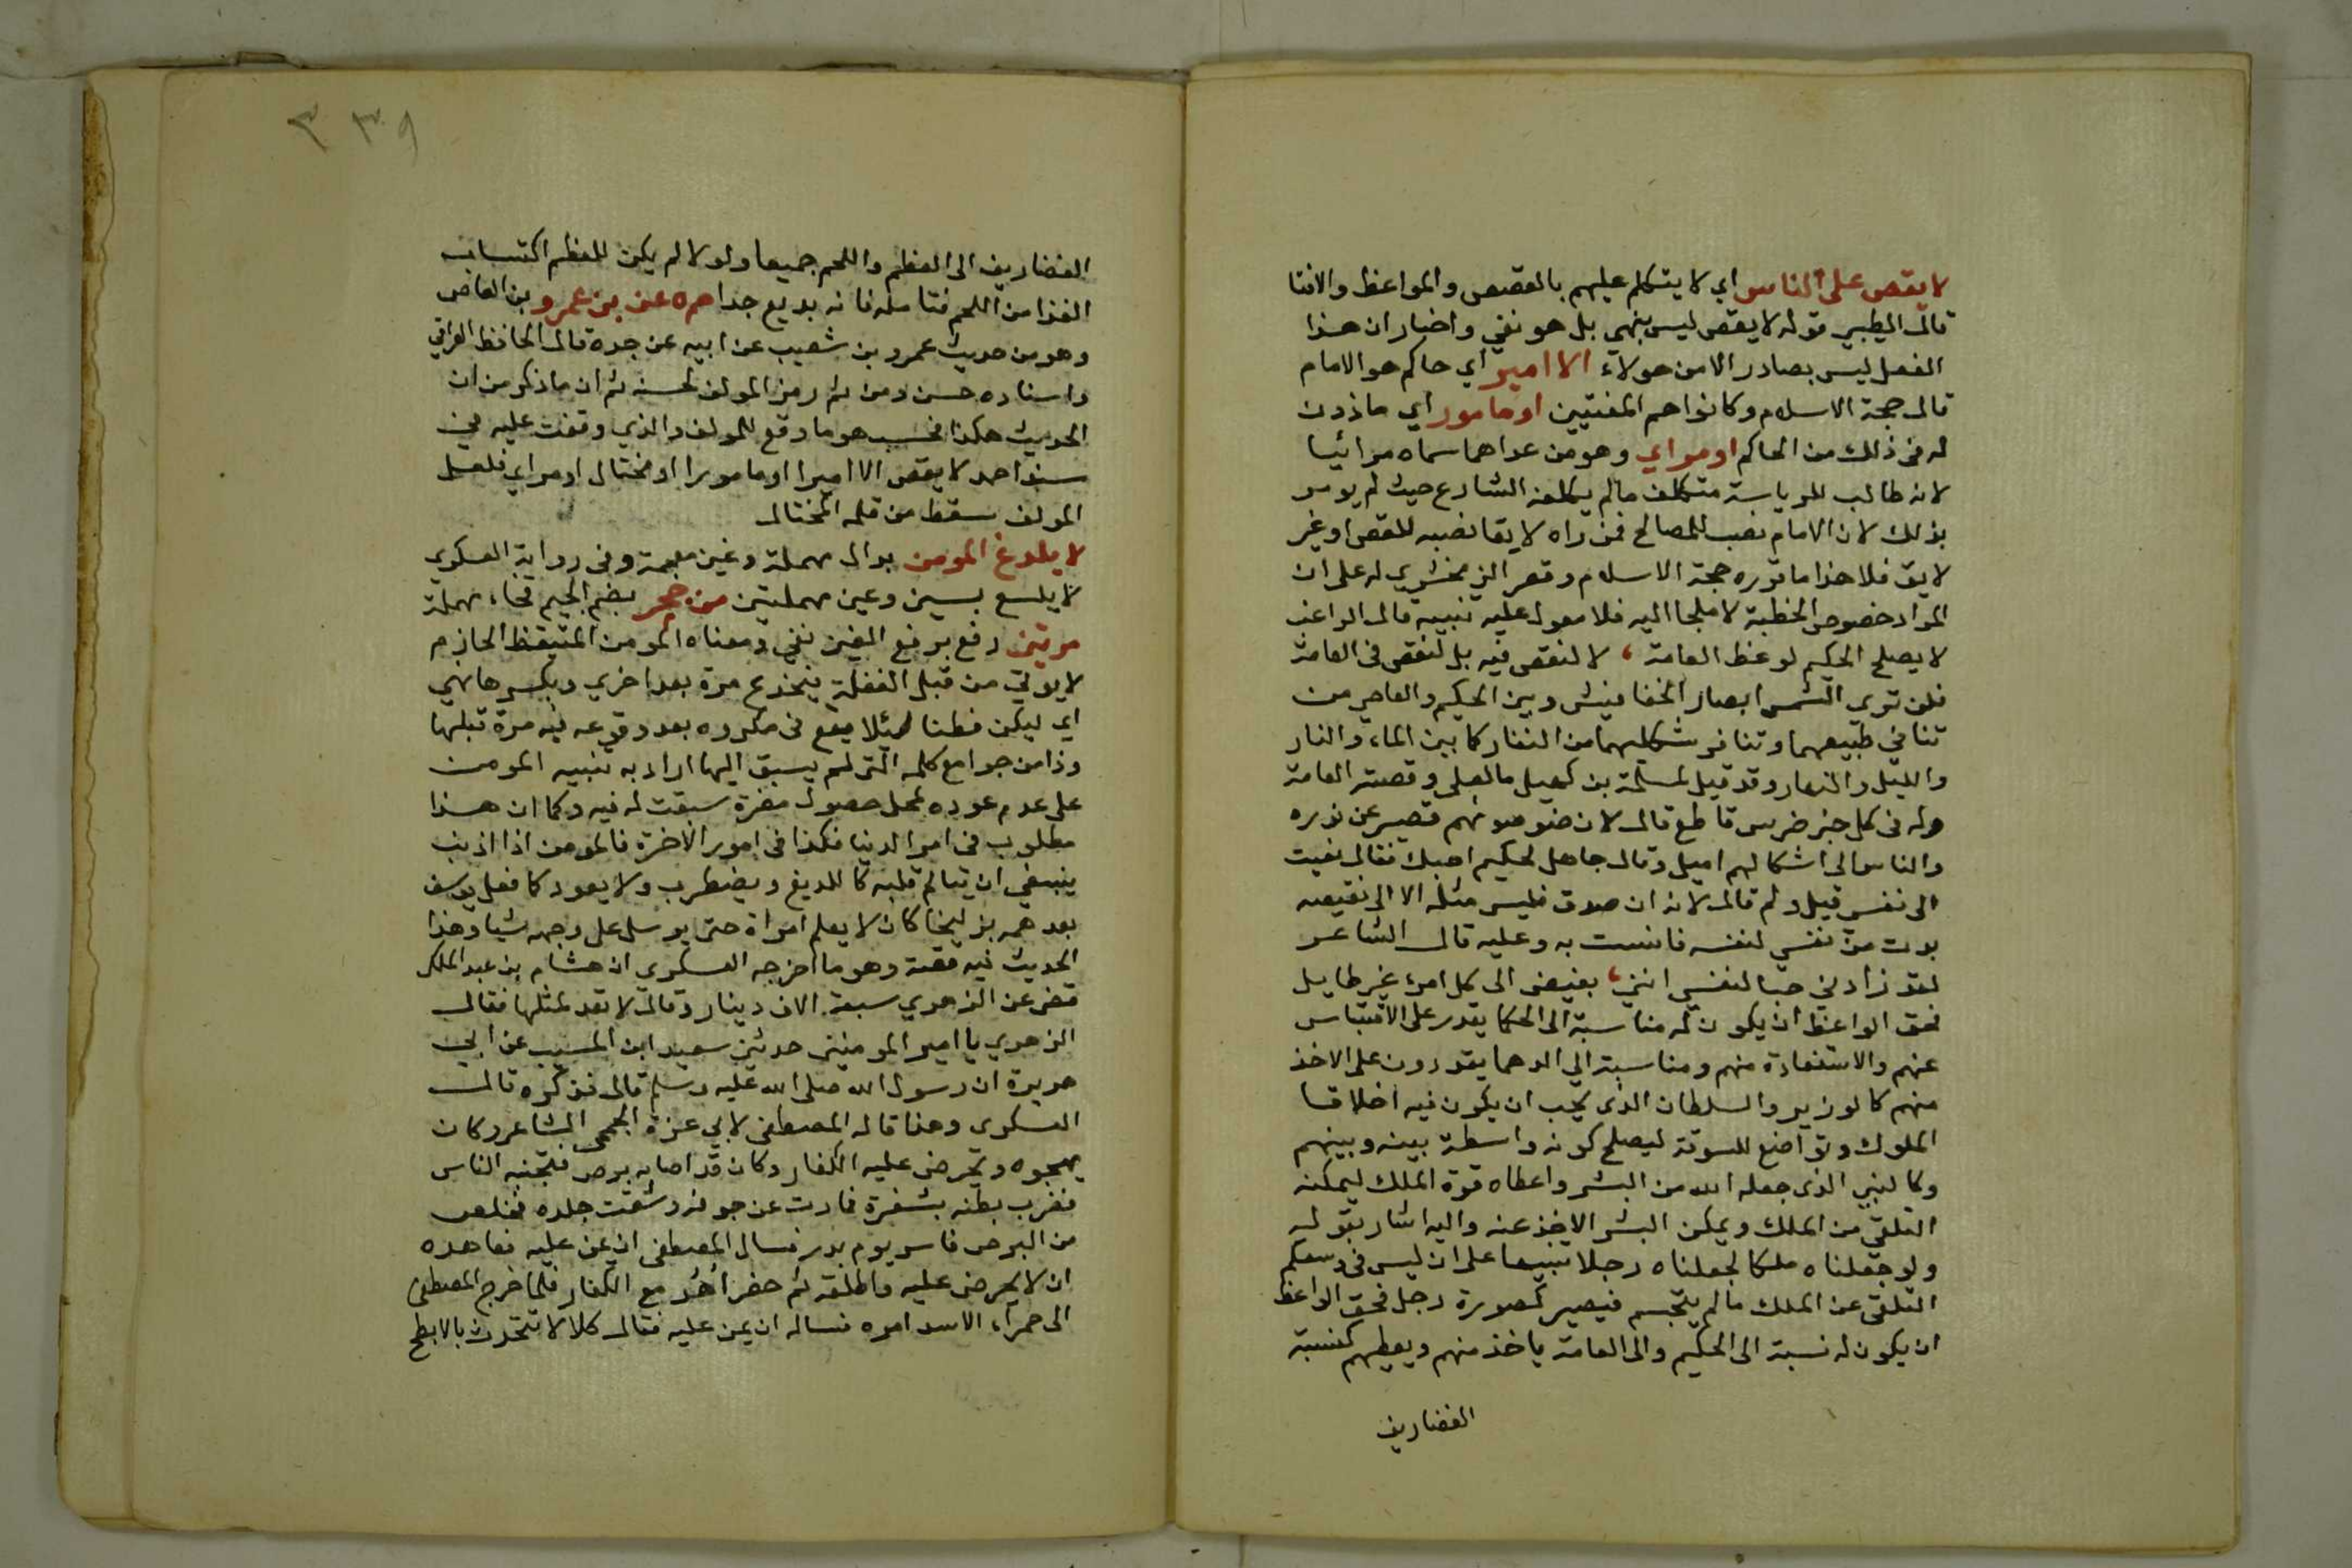 لا يقص على الناس اي لا يتكلم عليهم بالقصص والمواعظ والافتا
قال الطيبي قوله لا يقص ليس بنهي بل هو نفي واخبار ان هذا
الفعل ليس بصادر الا من هولاء الا امير اي حاكم هو الامام
قال حجة الاسلام وكانوا هم المفتيين او مامور اي ماذون
له في ذلك من الحاكم او مراي وهو من عداهما سماه مرائيا
لانه طالب للرياسة متكلف مالم يكلفه الشارع حيث لم يومر
بذلك لان الامام نصب للمصالح فمن راه لايقا نصبه للقص او غير
لايق فلا هذا ما قرره حجة الاسلام وقصر الزمخشري له على ان
المراد خصوص الخطبة لا ملجا اليه فلا معول عليه تنبيه قال الراغب
لا يصلح الحكيم لوعظ العامة، لا لنقص فيه بل لنقص في العامة
فلن ترى الشمس ابصار الخفافيش وبين الحكيم والعامي من
تنافي طبيعهما وتنافر شكليهما من النفار كما بين الماء والنار
والليل والنهار وقد قيل لسلمة بن كهيل ما لعلي رفضته العامة
وله في كل خير ضرس قاطع قال لان ضوء عيونهم قصير عن نوره
والناس الى اشكالهم اميل وقال جاهل لحكيم احبك فقال نعيت
الى نفسي قيل ولم قال لانه ان صدق فليس مثله الا الى نقيصه
بدت من نفسي لنفسه فانست به وعليه قال الشاعر
لقد زادني حبا لنفسي انني، بغيض الى كل امرء غير طايل
فحق الواعظ ان يكون له مناسبة الى الحكما يقدر على الاقتباس
عنهم والاستفادة منهم ومناسبة الي الدهما يقدرون على الاخذ
منهم كالوزير والسلطان الذى يجب ان يكون فيه اخلاق
الملوك وتواضع للسوقة ليصلح كونه واسطة بينه وبينهم
وكالنبي الذى جعله الله من البشر واعطاه قوة الملك ليمكنه
التلقي من الملك ويمكن البشر الاخذ عنه واليه اشار بقوله
ولو جعلناه ملكا لجعلناه رجلا تنبيها على ان ليس في وسعكم
التلقى عن الملك مالم يتجسم فيصير كصورة رجل فحق الواعظ
ان يكون له نسبة الى الحكيم والى العامة ياخذ منهم ويعطيهم كنسبة
الغضاريف
٣٣٩
الغضاريف الى العظم واللحم جميعا ولولا لم يكن للعظم اكتساب
الغذا من اللحم فتامله فانه بديع جدا حم ه عن بن عمرو بن العاص
وهو من حديث عمرو بن شعيب عن ابيه عن جده قال الحافظ العراقي
واسناده حسن ومن ثم رمز المولف لحسنه ثم ان ما ذكر من ان
الحديث هكذا فحسب هو ما وقع للمولف والذي وقفت عليه في
مسند احمد لا يقص الا اميرا او مامورا او مختال او مراي فلعل
المولف سقط من قلمه المختال
لا يلدغ المومن بدال مهملة وغين معجمة وفى رواية العسكري
لا يلسع بسين وعين مهملتين من جحر بضم الجيم فحاء مهملة
مرتين رفع برفع الغين نفي ومعناه المومن المتيقظ الحازم
لا يوتي من قبل الغفلة ينخدع مرة بعد اخري وبكسرها نهي
اي ليكن فطنا لئلا يقع في مكروه بعد وقوعه فيه مرة قبلها
وذا من جوامع كلمه التى لم يسبق اليها اراد به تنبيه المومن
على عدم عوده لمحل حصول مضرة سبقت له فيه وكما ان هذا
مطلوب في امر الدنيا فكذا في امور الاخرة فالمومن اذا اذنب
ينبغي ان يتالم قلبه كاللديغ ويضطرب ولا يعود كما فعل يوسف
بعد همه بزليخا كان لا يعلم امراة حتى يرسل على وجهه شيا وهذا
الحديث فيه قصة وهو ما اخرجه العسكري ان هشام بن عبد الملك
قضى عن الزهري سبعة الاف دينار وقال لا تعد لمثلها فقال
الزهري يا امير المومنين حدثني سعيد ابن المسيب عن ابي
هريرة ان رسول الله صلى الله عليه وسلم قال فذكره قال
العسكري وهذا قاله المصطفى لابي عزة الجمحي الشاعر وكان
يهجوه ويحرض عليه الكفار وكان قد اصابه برص فتجنبه الناس
فضرب بطنه بشفرة فمارت عن جوفه وشقت جلده فخلص
من البرص فاسر يوم بدر فسال المصطفى ان يمن عليه فعاهده
ان لا يحرض عليه واطلقه ثم حضر أُحُد مع الكفار فلما خرج المصطفى
الى حمراء الاسد اسره فساله ان يمن عليه فقال كلا لا تتحدث بالابطح